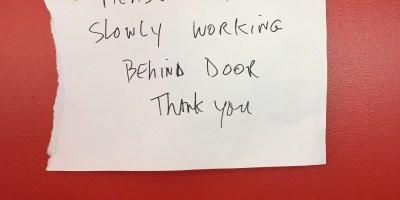 SLOWLY WORKING
BEHIND DOOR
THANK YOU